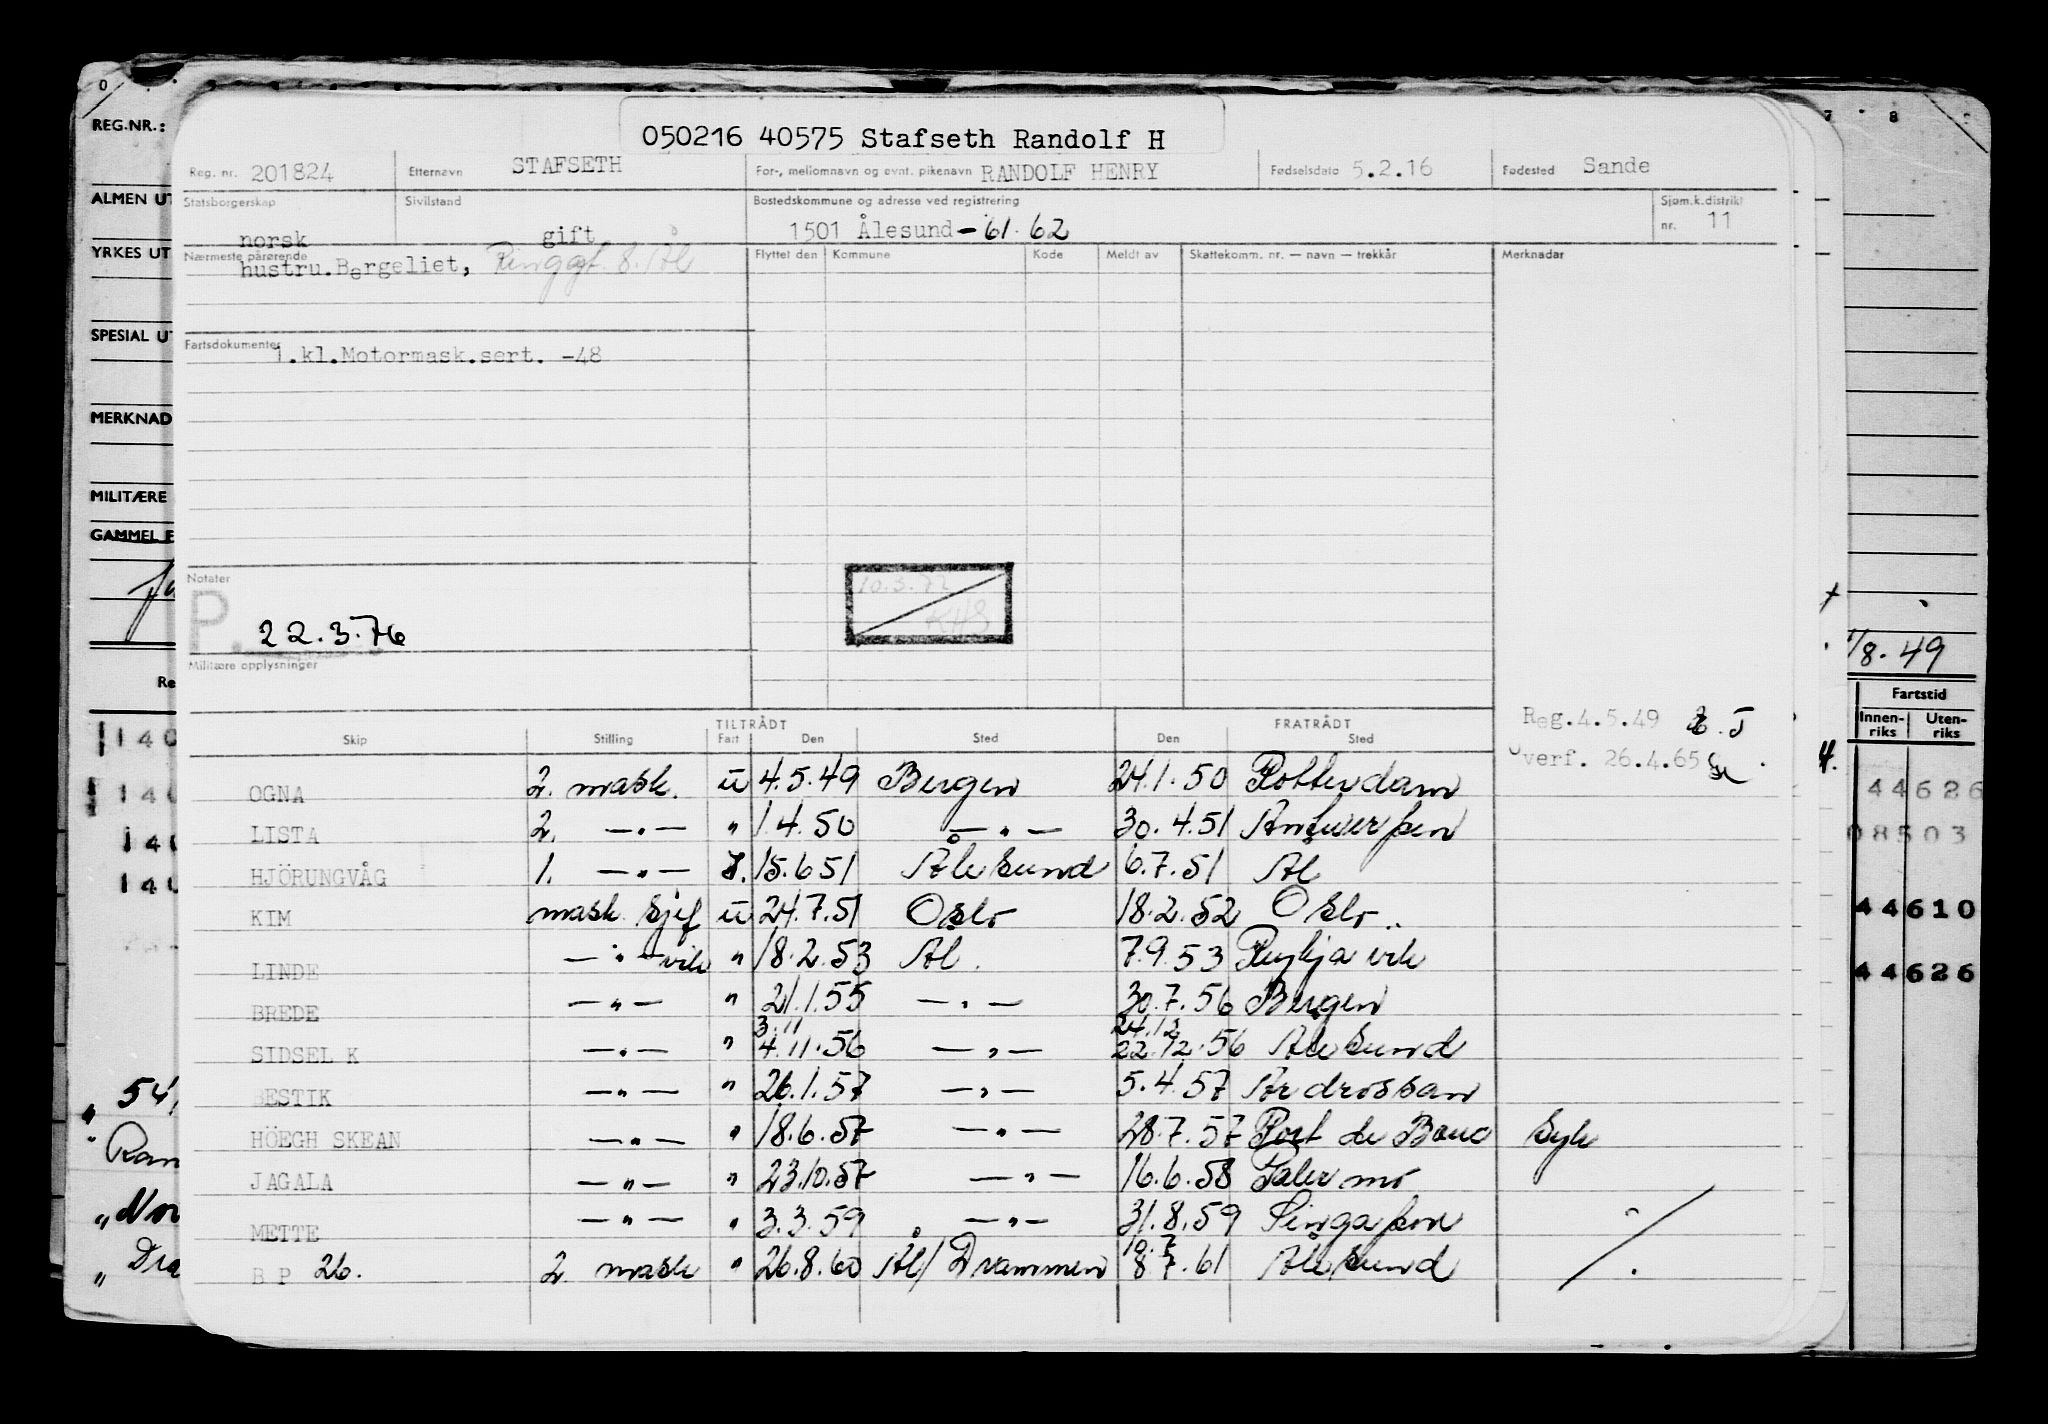 050216 40575 Stafseth Randolf H
Reg. nr. 201824 Etternavn STAFSETH For-, mellomnavn og evnt. pikenavn RANDOLF HENRY Fødselsdato 5.2.16 Fødested Sande
Statsborgerskap norsk Sivilstand gift Bostedskommune og adresse ved registrering 1501 Ålesund -61. 62 Sjøm.k.distrikt nr. 11
Nærmeste pårørende hustru.Bergeliet, Flyttet den Kommune Kode Meldt av Skattekomm. nr. — navn — trekkår Merknader
Fartsdokumenter 1.kl.Motormask.sert. -48
Notater
P. 22.3.76
10.3.72
KHS
Militære opplysninger
TILTRÅDT FRATRÅDT Reg.4.5.49
Skip Stilling Fart Den Sted Den Sted
verf. 26.4.65
OGNA 2. mask. u 4.5.49 Bergen 24.1.50 Rotterdam
LISTA 2. —„— " 1.4.50 —„— 30.4.51 Antwerpen
HJÖRUNGVÅG 1. —„— 15.6.51 Ålesund 6.7.51 Ål
KIM mask. sjef u 24.7.51 Oslo 18.2.52 Oslo
LINDE —„— vik " 18.2.53 Ål. 7.9.53 Reykjavik
BREDE —„— " 21.1.55 —„— 30.7.56 Bergen
3.11 24.12
SIDSEL K —„— " 4.11.56 —„— 22.12.56 Ålesund
BESTIK —„— " 26.1.57 —„— 5.4.57 Ardrossan
HÖEGH SKEAN —„— " 18.6.57 —„— 28.7.57 Port de Bouc Syk
JAGALA —„— " 23.10.57 —„— 16.6.58 Palermo
METTE —„— " 3.3.59 —„— 31.8.59 Singapore
10.7
B P 26. 2 mask " 26.8.60 Ål/Drammen 8.7.61 Ålesund
REG.NR.:
ALMEN UT
YRKES UT
SPESIAL UT
MERKNAD
MILITÆRE
GAMMEL
Re
140
140
140
140
54,
Ran
Nor
Dra
7 8
/8.49
Fartstid
Innen-riks Uten-riks
44626
08503
44610
44626